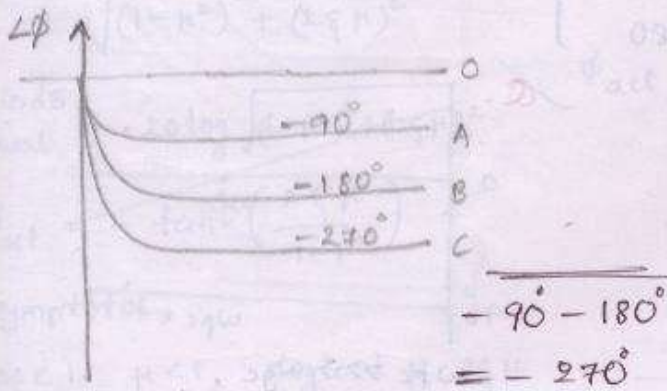 ∠ϕ
0
-90° A
-180° B
-270° C
-90° - 180°
= - 270°